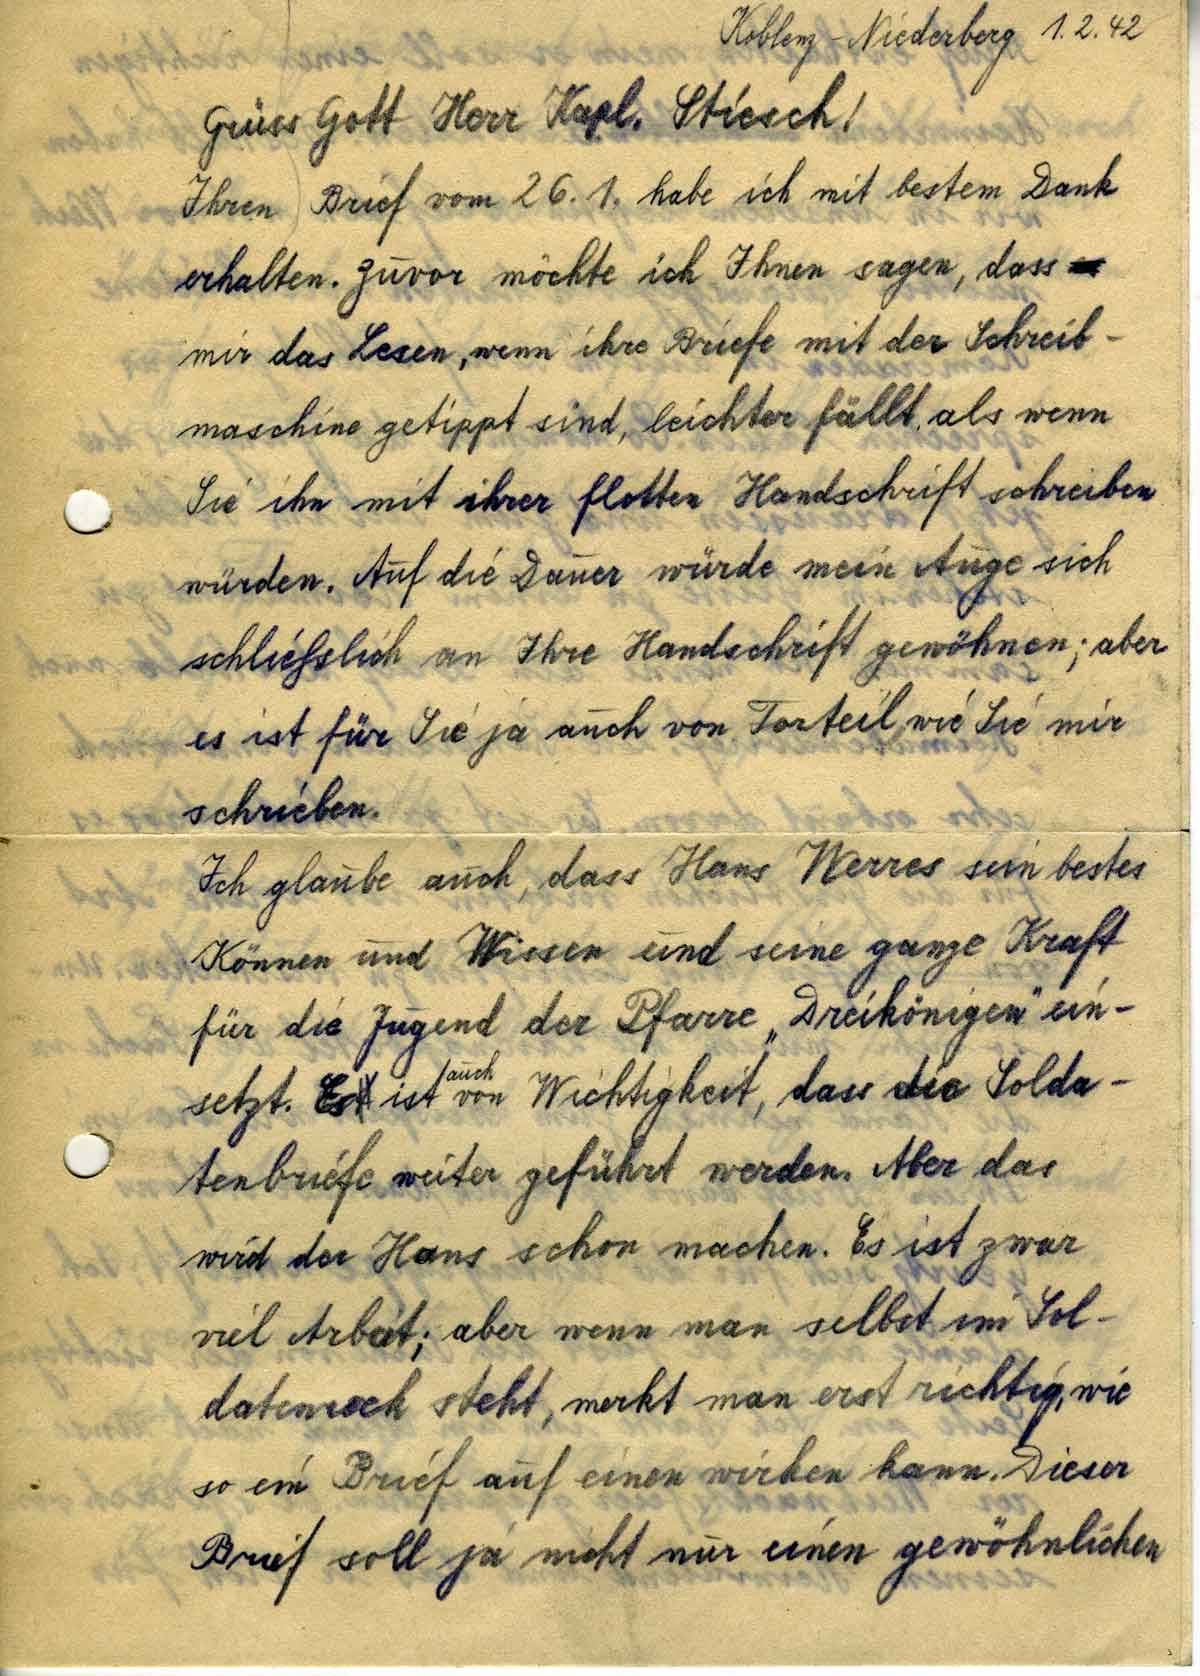 Koblenz-Niederberg 1.2.42
Grüss Gott Herr Kapl. Stiesch!
Ihren Brief vom 26.1. habe ich mit bestem Dank
erhalten. Zuvor möchte ich Ihnen sagen, dass
mir das Lesen, wenn ihre Briefe mit der Schreib-
maschine getippt sind, leichter fällt, als wenn
Sie ihn mit ihrer flotten Handschrift schreiben
würden. Auf die Dauer würde mein Auge sich
schliesslich an Ihre Handschrift gewöhnen; aber
es ist für Sie ja auch von Vorteil, wie Sie mir
schrieben.
Ich glaube auch, dass Hans Werres sein bestes
Können und Wissen und seine ganze Kraft
für die Jugend der Pfarre „Dreikönigen" ein-
setzt. Es ist auch von Wichtigkeit, dass die Solda-
tenbriefe weiter geführt werden. Aber das
wird der Hans schon machen. Es ist zwar
viel Arbeit; aber wenn man selbst im Sol-
datenrock steht, merkt man erst richtig, wie
so ein Brief auf einen wirken kann. Dieser
Brief soll ja nicht nur einen gewöhnlichen